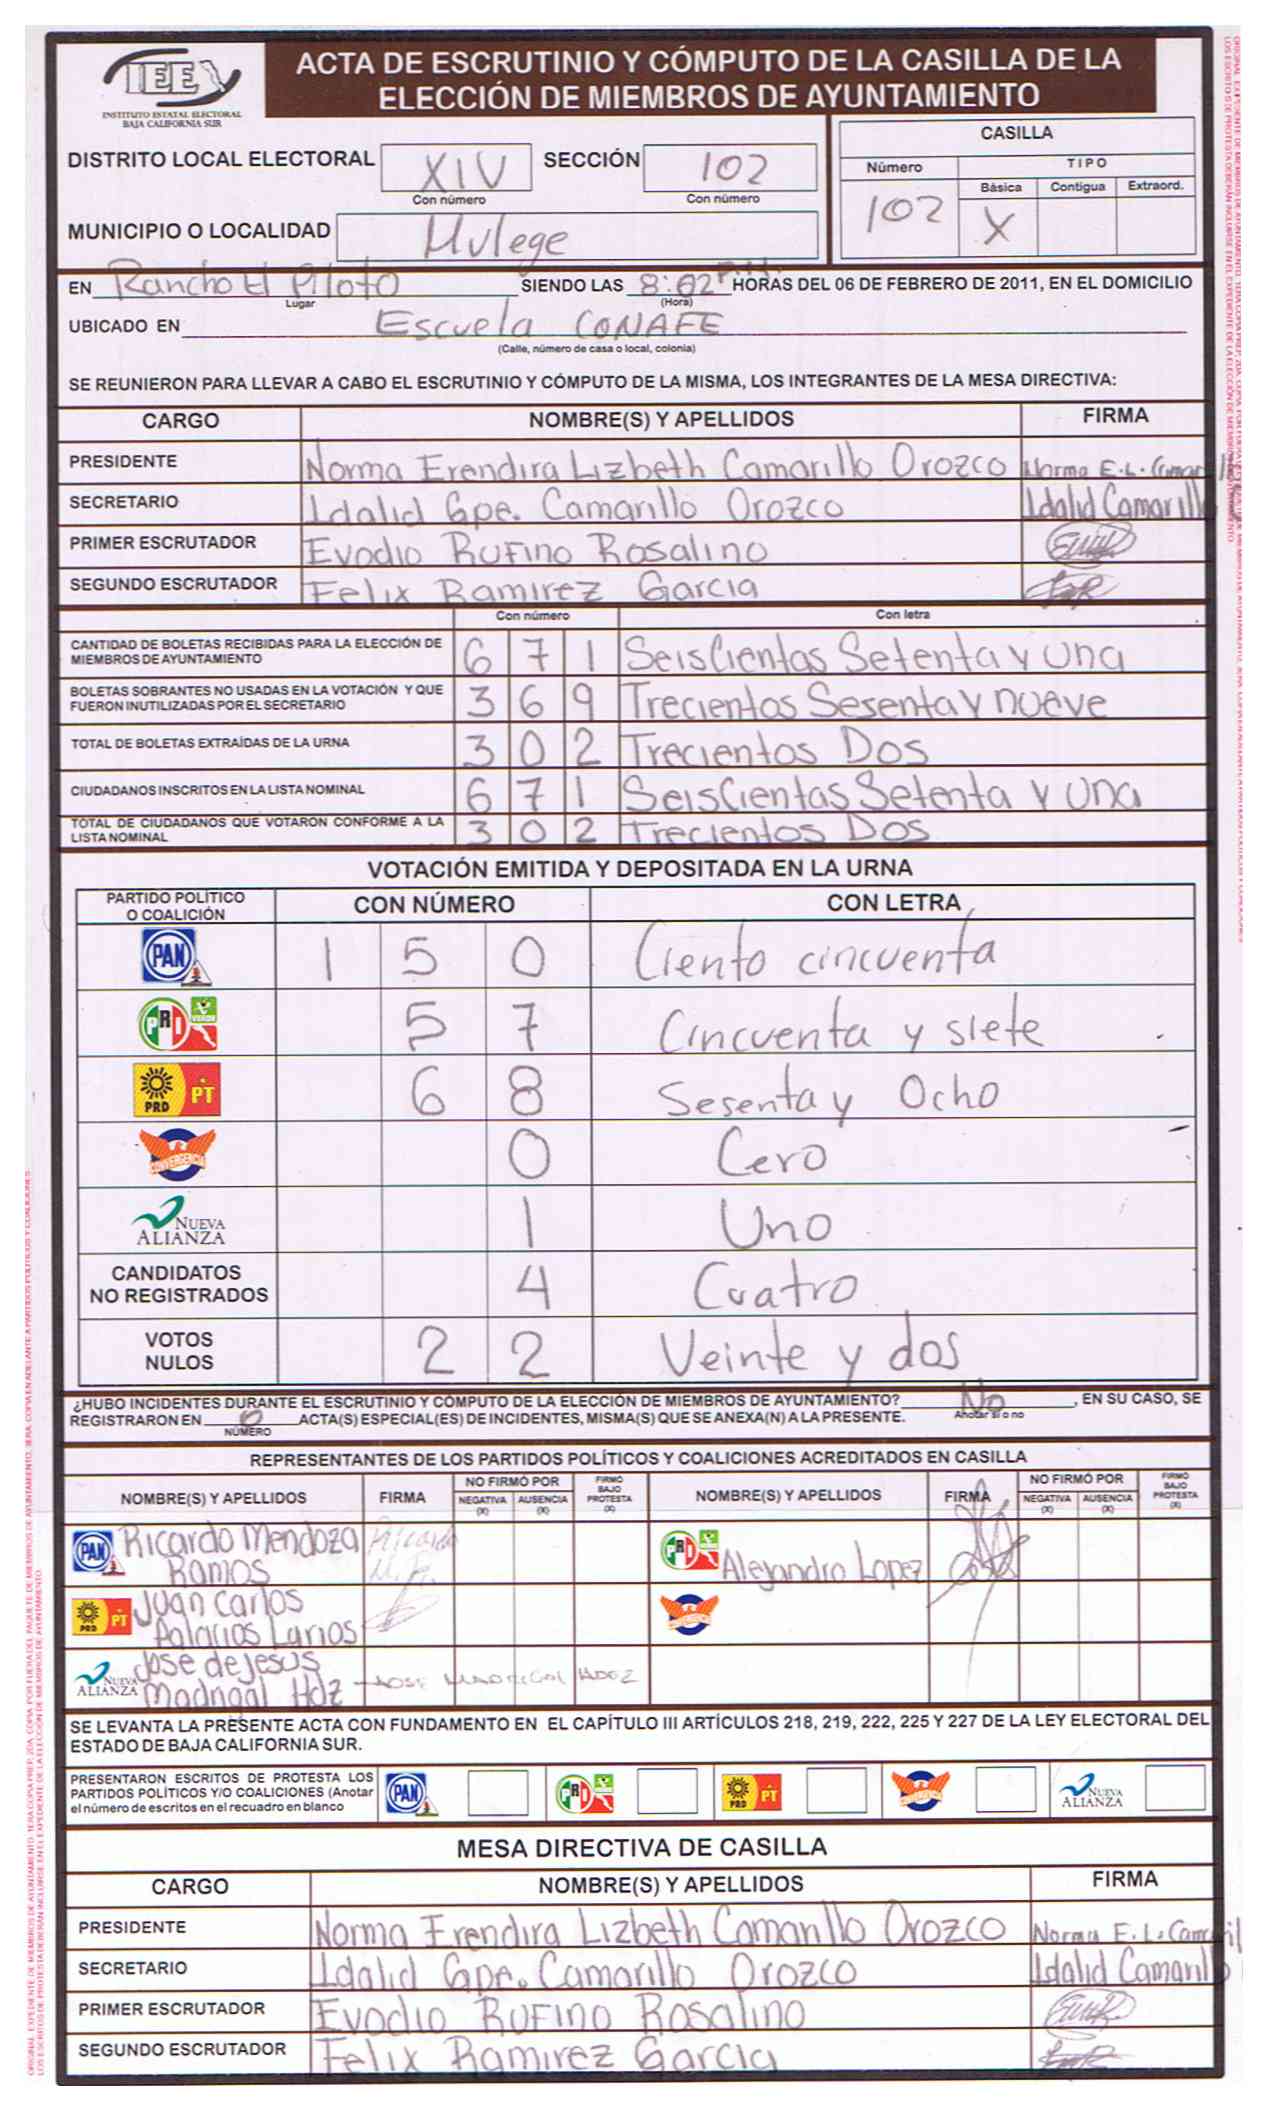 IEE
INSTITUTO ESTATAL ELECTORAL
BAJA CALIFORNIA SUR
ACTA DE ESCRUTINIO Y CÓMPUTO DE LA CASILLA DE LA
ELECCIÓN DE MIEMBROS DE AYUNTAMIENTO
DISTRITO LOCAL ELECTORAL XIV SECCIÓN 102
Con número Con número
MUNICIPIO O LOCALIDAD Mulege
CASILLA
Número TIPO
Básica Contigua Extraord.
102 X
EN Rancho El Piloto SIENDO LAS 8:02 P.M. HORAS DEL 06 DE FEBRERO DE 2011, EN EL DOMICILIO
Lugar (Hora)
UBICADO EN Escuela CONAFE
(Calle, número de casa o local, colonia)
SE REUNIERON PARA LLEVAR A CABO EL ESCRUTINIO Y CÓMPUTO DE LA MISMA, LOS INTEGRANTES DE LA MESA DIRECTIVA:
CARGO NOMBRE(S) Y APELLIDOS FIRMA
PRESIDENTE Norma Erendira Lizbeth Camarillo Orozco Norma E.L. Camarill
SECRETARIO Idalid Gpe. Camarillo Orozco Idalid Camarillo
PRIMER ESCRUTADOR Evodio Rufino Rosalino
SEGUNDO ESCRUTADOR Felix Ramirez Garcia
Con número Con letra
CANTIDAD DE BOLETAS RECIBIDAS PARA LA ELECCIÓN DE
MIEMBROS DE AYUNTAMIENTO 6 7 1 SeisCientas Setenta y una
BOLETAS SOBRANTES NO USADAS EN LA VOTACIÓN Y QUE
FUERON INUTILIZADAS POR EL SECRETARIO 3 6 9 Trecientos Sesenta y nueve
TOTAL DE BOLETAS EXTRAÍDAS DE LA URNA 3 0 2 Trecientos Dos
CIUDADANOS INSCRITOS EN LA LISTA NOMINAL 6 7 1 SeisCientas Setenta y una
TOTAL DE CIUDADANOS QUE VOTARON CONFORME A LA
LISTA NOMINAL 3 0 2 Trecientos Dos
VOTACIÓN EMITIDA Y DEPOSITADA EN LA URNA
PARTIDO POLÍTICO
O COALICIÓN CON NÚMERO CON LETRA
PAN 1 5 0 Ciento cincuenta
PRI VERDE 5 7 Cincuenta y siete
PRD PT 6 8 Sesenta y Ocho
CONVERGENCIA 0 Cero
NUEVA ALIANZA 1 Uno
CANDIDATOS
NO REGISTRADOS 4 Cuatro
VOTOS
NULOS 2 2 Veinte y dos
¿HUBO INCIDENTES DURANTE EL ESCRUTINIO Y CÓMPUTO DE LA ELECCIÓN DE MIEMBROS DE AYUNTAMIENTO? No, EN SU CASO, SE
Anotar sí o no
REGISTRARON EN 0 ACTA(S) ESPECIAL(ES) DE INCIDENTES, MISMA(S) QUE SE ANEXA(N) A LA PRESENTE.
NÚMERO
REPRESENTANTES DE LOS PARTIDOS POLÍTICOS Y COALICIONES ACREDITADOS EN CASILLA
NOMBRE(S) Y APELLIDOS FIRMA NO FIRMÓ POR NEGATIVA (X) AUSENCIA (X) FIRMÓ BAJO PROTESTA (X) NOMBRE(S) Y APELLIDOS FIRMA NO FIRMÓ POR NEGATIVA (X) AUSENCIA (X) FIRMÓ BAJO PROTESTA (X)
PAN Ricardo Mendoza Ramos Ricardo M. R. PRI Alejandro Lopez
PRD PT Juan Carlos Palacios Larios CONVERGENCIA
NUEVA ALIANZA Jose de Jesus Madrigal Hdz JOSE MADRIGAL HDEZ
SE LEVANTA LA PRESENTE ACTA CON FUNDAMENTO EN EL CAPÍTULO III ARTÍCULOS 218, 219, 222, 225 Y 227 DE LA LEY ELECTORAL DEL
ESTADO DE BAJA CALIFORNIA SUR.
PRESENTARON ESCRITOS DE PROTESTA LOS
PARTIDOS POLÍTICOS Y/O COALICIONES (Anotar
el número de escritos en el recuadro en blanco
PAN PRI PRD PT CONVERGENCIA NUEVA ALIANZA
MESA DIRECTIVA DE CASILLA
CARGO NOMBRE(S) Y APELLIDOS FIRMA
PRESIDENTE Norma Erendira Lizbeth Camarillo Orozco Norma E.L. Camaril
SECRETARIO Idalid Gpe. Camarillo Orozco Idalid Camarillo
PRIMER ESCRUTADOR Evodio Rufino Rosalino
SEGUNDO ESCRUTADOR Felix Ramirez Garcia